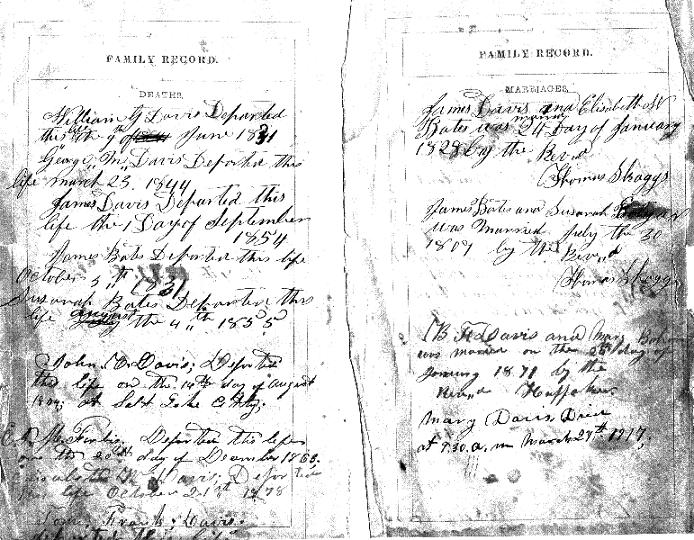 FAMILY RECORD.
DEATHS.
William G Davis Departed
this June 1831
George "M" Davis Departed this
life march 23. 1844
James Davis Departed this
life the 1 Day of September
1854
James Bates Departed this life
October 5"th 1831
Susanah Bates Departed this
life august the 4"th 1855
John C. Davis; Departed
this life on the 14th day of August
at Salt Lake City;
Departed this life
on the 20th day of December 1863;
Davis; Departed
this life October 1878
Frank; Davis.
departed this life
FAMILY RECORD.
MARRIAGES.
James Davis and Elisabeth
Bates was married 24 Day of January
1828 by the Revd
Thomas Skaggs
James Bates and Susanah
was married July the 30
1807 by the Revd
Thomas Skaggs
B F Davis and Mary
was married on the 25th day of
1871 by the
Revnd Huffaker.
Mary Davis Died
at 9.30 a.m March 27th 1917;